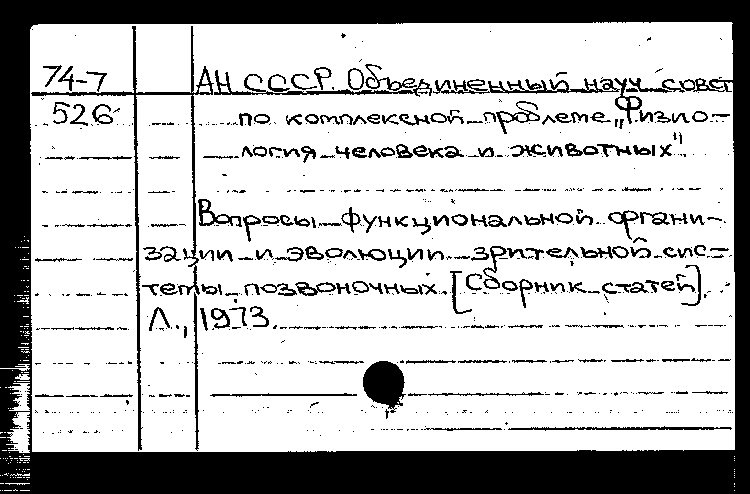 74-7 АН СССР. Объединенный науч. совет
526 по комплексной проблеме „Физио-
логия человека и животных"
Вопросы функциональной органи-
зации и эволюции зрительной сис-
темы позвоночных. [Сборник статей].
Л., 1973.